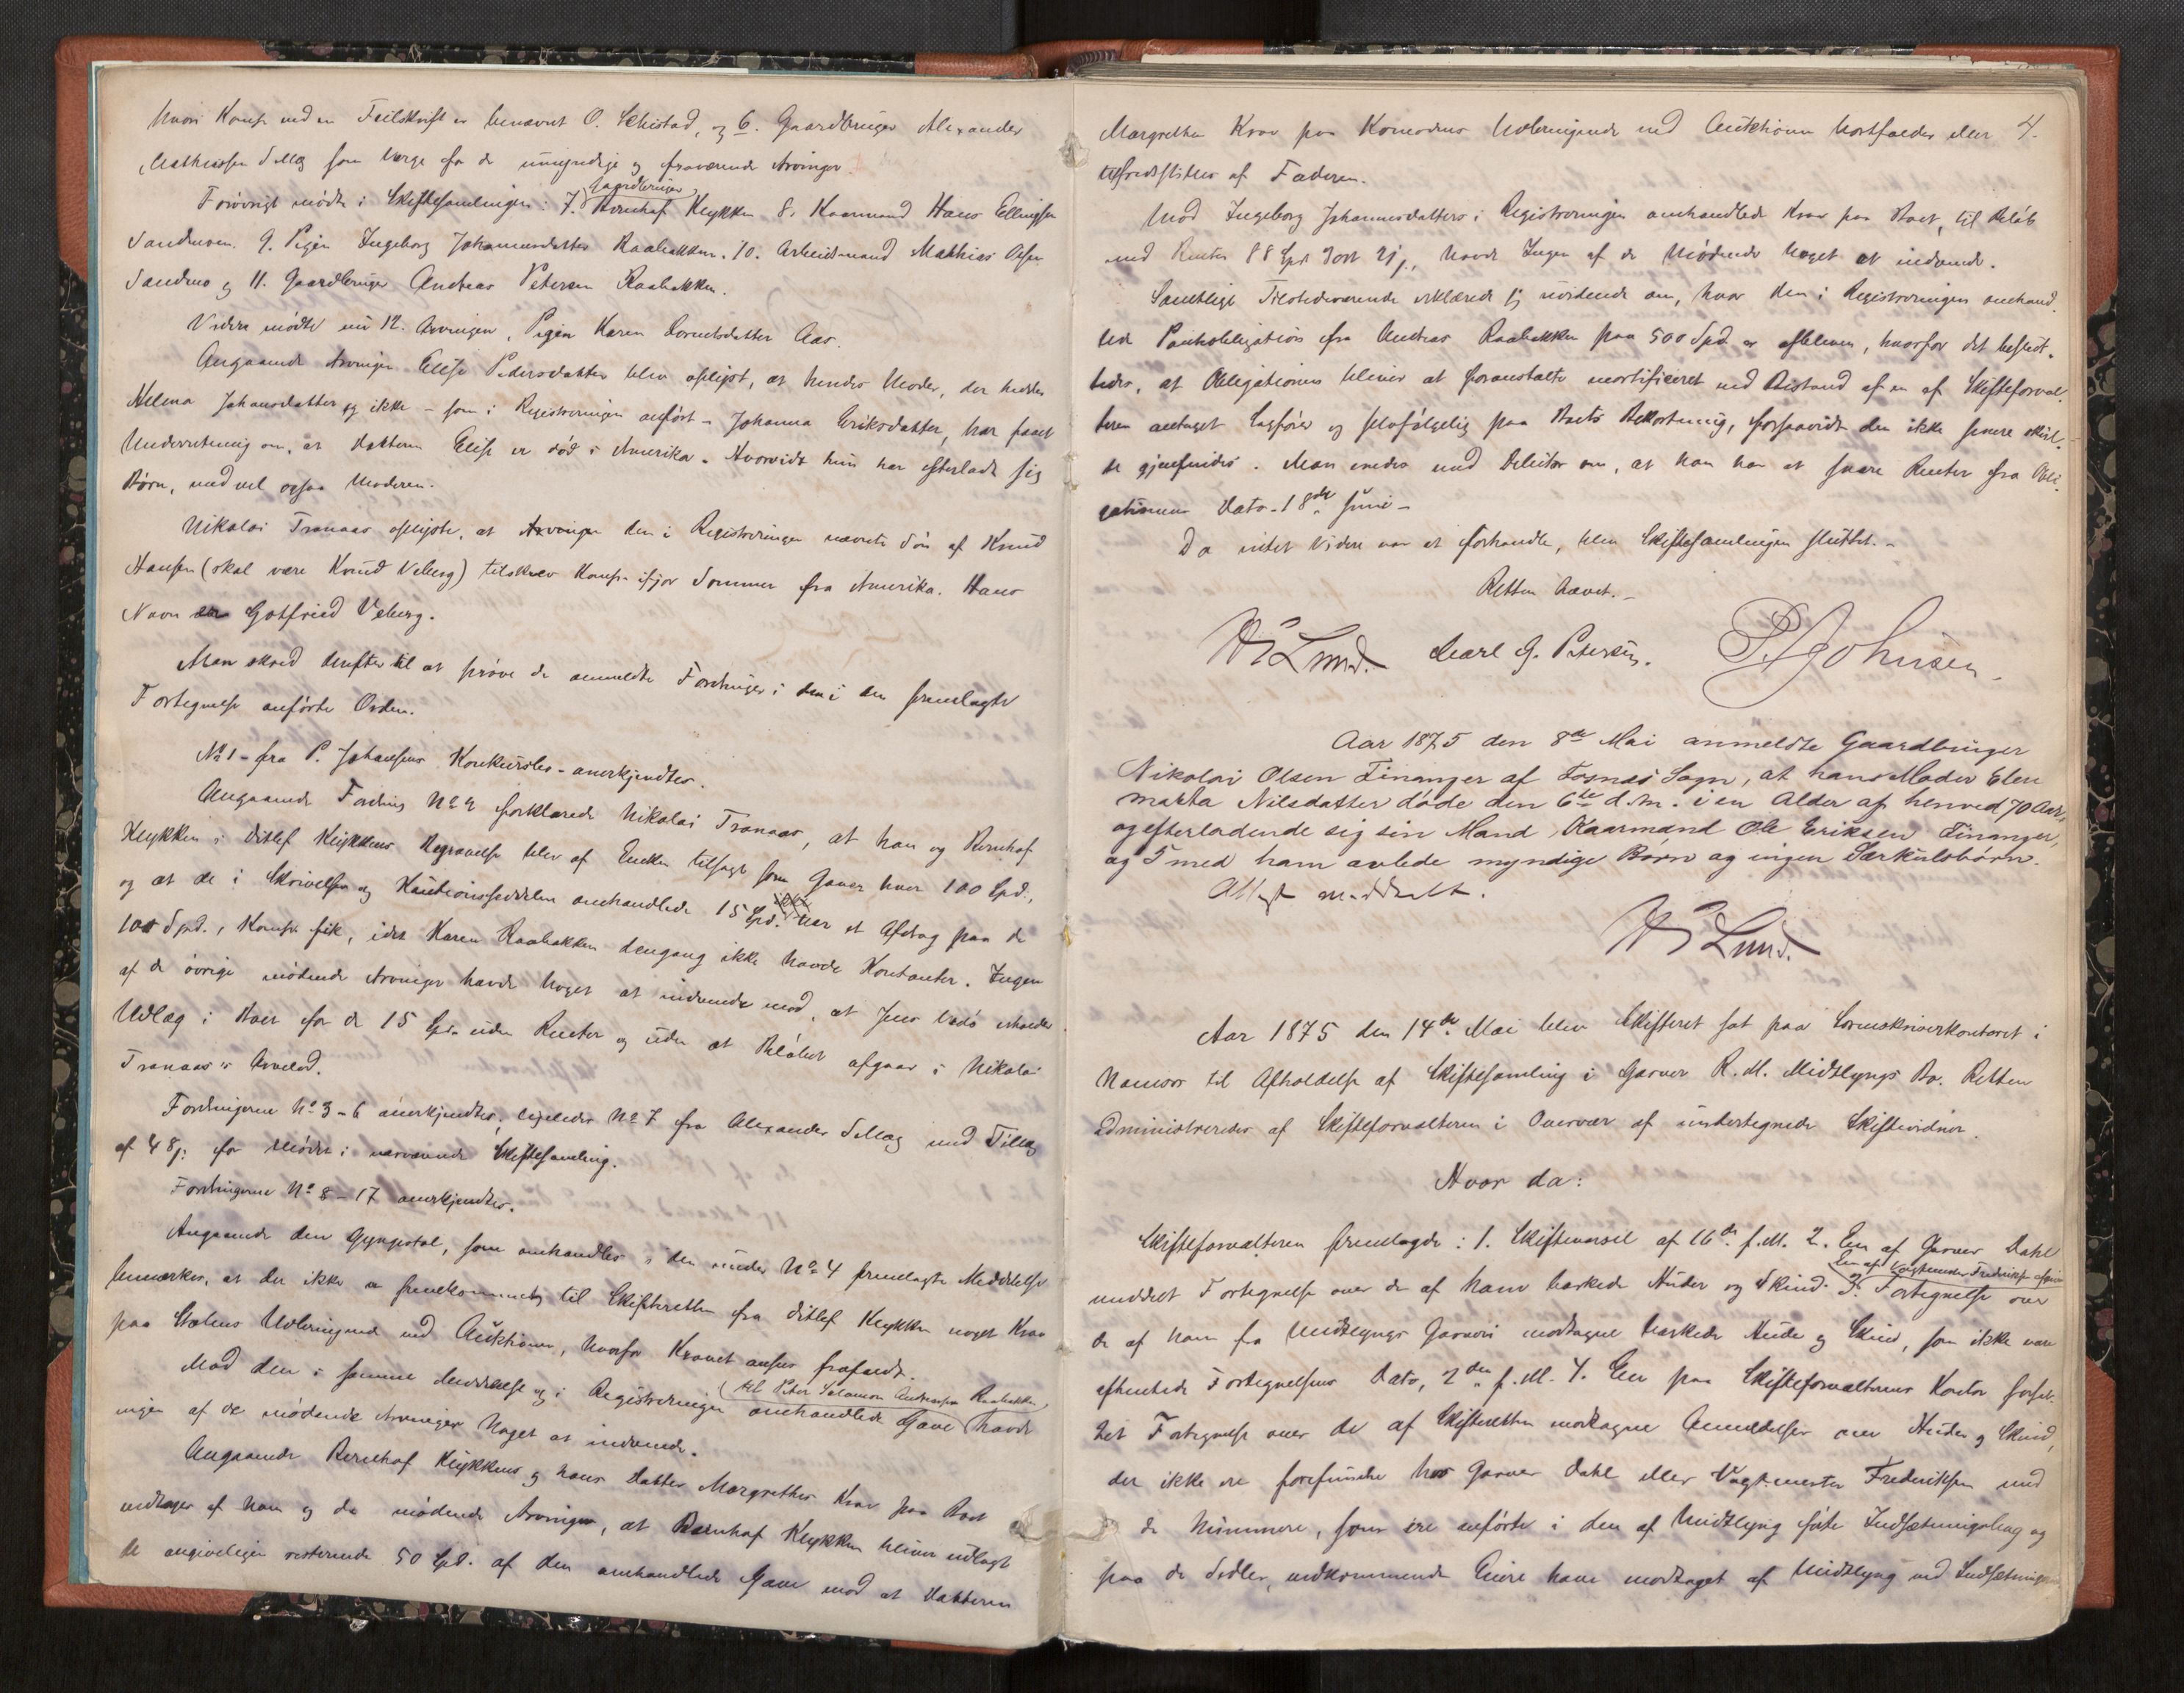 hvori Komp. ved en Feilskrift er benævnt O. Schistad, og 6. Gaardbruger Alexander
Mathiesen Sellæg som Værge for de umyndige og fraværende Arvinger.
Forøvrigt mødte i Skiftesamlingen: 7. Gaardbruger Bernhof Klykken 8. Kaarmand Hans Ellingsen
Sandmoen. 9. Pigen Ingeborg Johannesdatter Raabakken. 10. Arbeidsmand Mathias Olsen
Sandmo og 11. Gaardbruger Andreas Petersen Raabakken.
Videre mødte nu 12. Arvingen, Pigen Karen Berntsdatter Aas.
Angaaende Arvingen Elise Pedersdatter blev oplyst, at hendes Moder, der hedder
Helena Johansdatter og ikke – som i Registreringen anført – Johanna Eriksdatter, har faaet
Underretning om, at Datteren Elise er død i Amerika. Hvorvidt hun har efterladt sig
Børn, ved vel ogsaa Moderen.
Nikolai Tranaas oplyste, at Arvingen den i Registreringen nævnte Søn af Knud
Hansen (skal være Knud Veberg) tilskrev Komp. ifjor Sommer fra Amerika. Hans
Navn er Gotfried Veberg.
Man skred derefter til at prøve de anmeldte Fordringer i den i den fremlagte
Fortegnelse anførte Orden.
No 1 – fra P. Johansens Konkursbo – anerkjendtes.
Angaaende Fordring No 2 forklarede Nikolai Tranaas, at han og Bernhof
Klykken i Ditlef Klykkens Begravelse blev af Enken tilsagt som Gaver hver 100 Spd.,
og at de i Skrivelsen og Kautionsseddelen omhandlede 15 Spd. var et Afdrag paa de
100 Spd., Komp. fik, idet Karen Raabakken dengang ikke havde Kontanter. Ingen
af de øvrige mødende Arvinger havde Noget at indvende mod, at Jens erholder
Udlæg i Boet for de 15 Spd. uden Renter og uden at Beløbet afgaar i Nikolai
Tranaas's Arvelod.
Fordringerne No 3–6 anerkjendtes, ligeledes No 7 fra Alexander Sellæg med Tillæg
af 48 s. for Mødet i nærværende Skiftesamling.
Fordringerne No 8–17 anerkjendtes.
Angaaende den Gyngestol, som omhandles i den under No 4 fremlagte Meddelelse
bemærkes, at der ikke er fremkommet til Skifteretten fra Ditlef Klykken noget Krav
paa Stolens Udleveringende ved Auktionen, hvorfor Kravet ansees frafaldt.
Mod den i samme Meddelelse og i Registreringen omhandlede Gave til Peter Salamon Andreasen Raabakken havde
ingen af de mødende Arvinger Noget at indvende.
Angaaende Bernhof Klykkens og hans Datter Margrethes Krav paa Boet
vedtages af ham og de mødende Arvinger, at Bernhof Klykken bliver udlagt
de angiveligen resterende 50 Spd. af den omhandlede Gave mod at Datteren
Margrethes Krav paa Komodens Udbringende ved Auktionen bortfalder eller 4.
tilfredsstilles af Faderen.
Mod Ingeborg Johannesdatters i Registreringen omhandlede Krav paa Boet, til Beløb
med Renter 88 Spd 3 ort 21 s., havde Ingen af de Mødende Noget at indvende.
Samtlige Tilstedeværende erklærede sig uvidende om, hvor den i Registreringen omhand-
lede Pantobligation fra Andreas Raabakken paa 500 Spd. er afbleven, hvorfor det beslut-
tedes, at Obligationen bliver at foranstalte mortificeret ved Bistand af en af Skifteforval-
teren antaget Sagfører og selvfølgelig paa Boets Bekostning, forsaavidt den ikke senere skul-
de gjenfindes. Man enedes med Debitor om, at han har at svare Renter fra Obli-
gationens Dato – 18de Juni –
Da intet Videre var at forhandle, blev Skiftesamlingen sluttet. –
Retten hævet. –
Lund. Carl G. Petersen. P. Johnsen
Aar 1875 den 8de Mai anmeldte Gaardbruger
Nikolai Olsen Finanger af Fosnæs Sogn, at hans Moder Elen
Marta Nilsdatter døde den 6te d.M. i en Alder af henved 70 Aar,
og efterladende sig sin Mand Kaarmand Ole Eriksen Finanger,
og 5 med ham avlede myndige Børn og ingen Særkulsbørn.
Attest meddelt.
Lund.
Aar 1875 den 14de Mai blev Skifteret sat paa Sorenskriverkontoret i
Namsos til Afholdelse af Skiftesamling i Garver R. M. Midtlyngs Bo. Retten
administreredes af Skifteforvalteren i Overvær af undertegnede Skiftevidner.
Hvor da:
Skifteforvalteren fremlagde: 1. Skiftevarsel af 16de f.M. 2. En af Garver Dahl
meddelt Fortegnelse over de af ham barkede Huder og Skind. 3. En af Vagtmester Fredriksen Fortegnelse over
de af ham fra Midtlyngs Garveri modtagne barkede Huder og Skind, som ikke vare
afhentede Fortegnelsens Dato, 2den f.M. 4. En paa Skifteforvalterens Kontor forfat-
tet Fortegnelse over de af Skifteretten modtagne Anmeldelser over Huder og Skind,
der ikke ere forefundne hos Garver Dahl eller Vagtmester Fredriksen med
de Nummere, som ere anførte i den af Midtlyng førte Indsætningsbog og
paa de Sedler, vedkommende Eiere have modtaget af Midtlyng ved Indsætningen